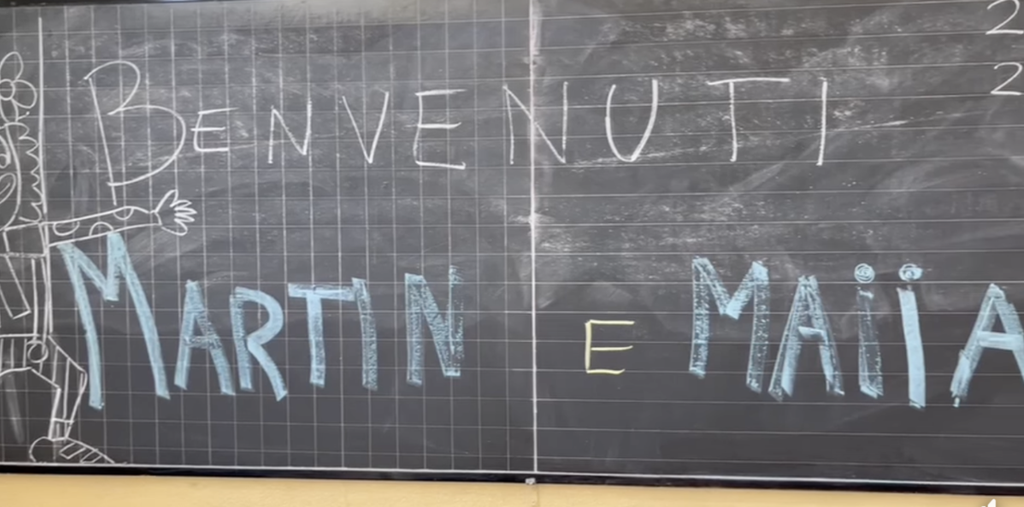 BENVENUTI
MARTIN E MAiiA
2
2